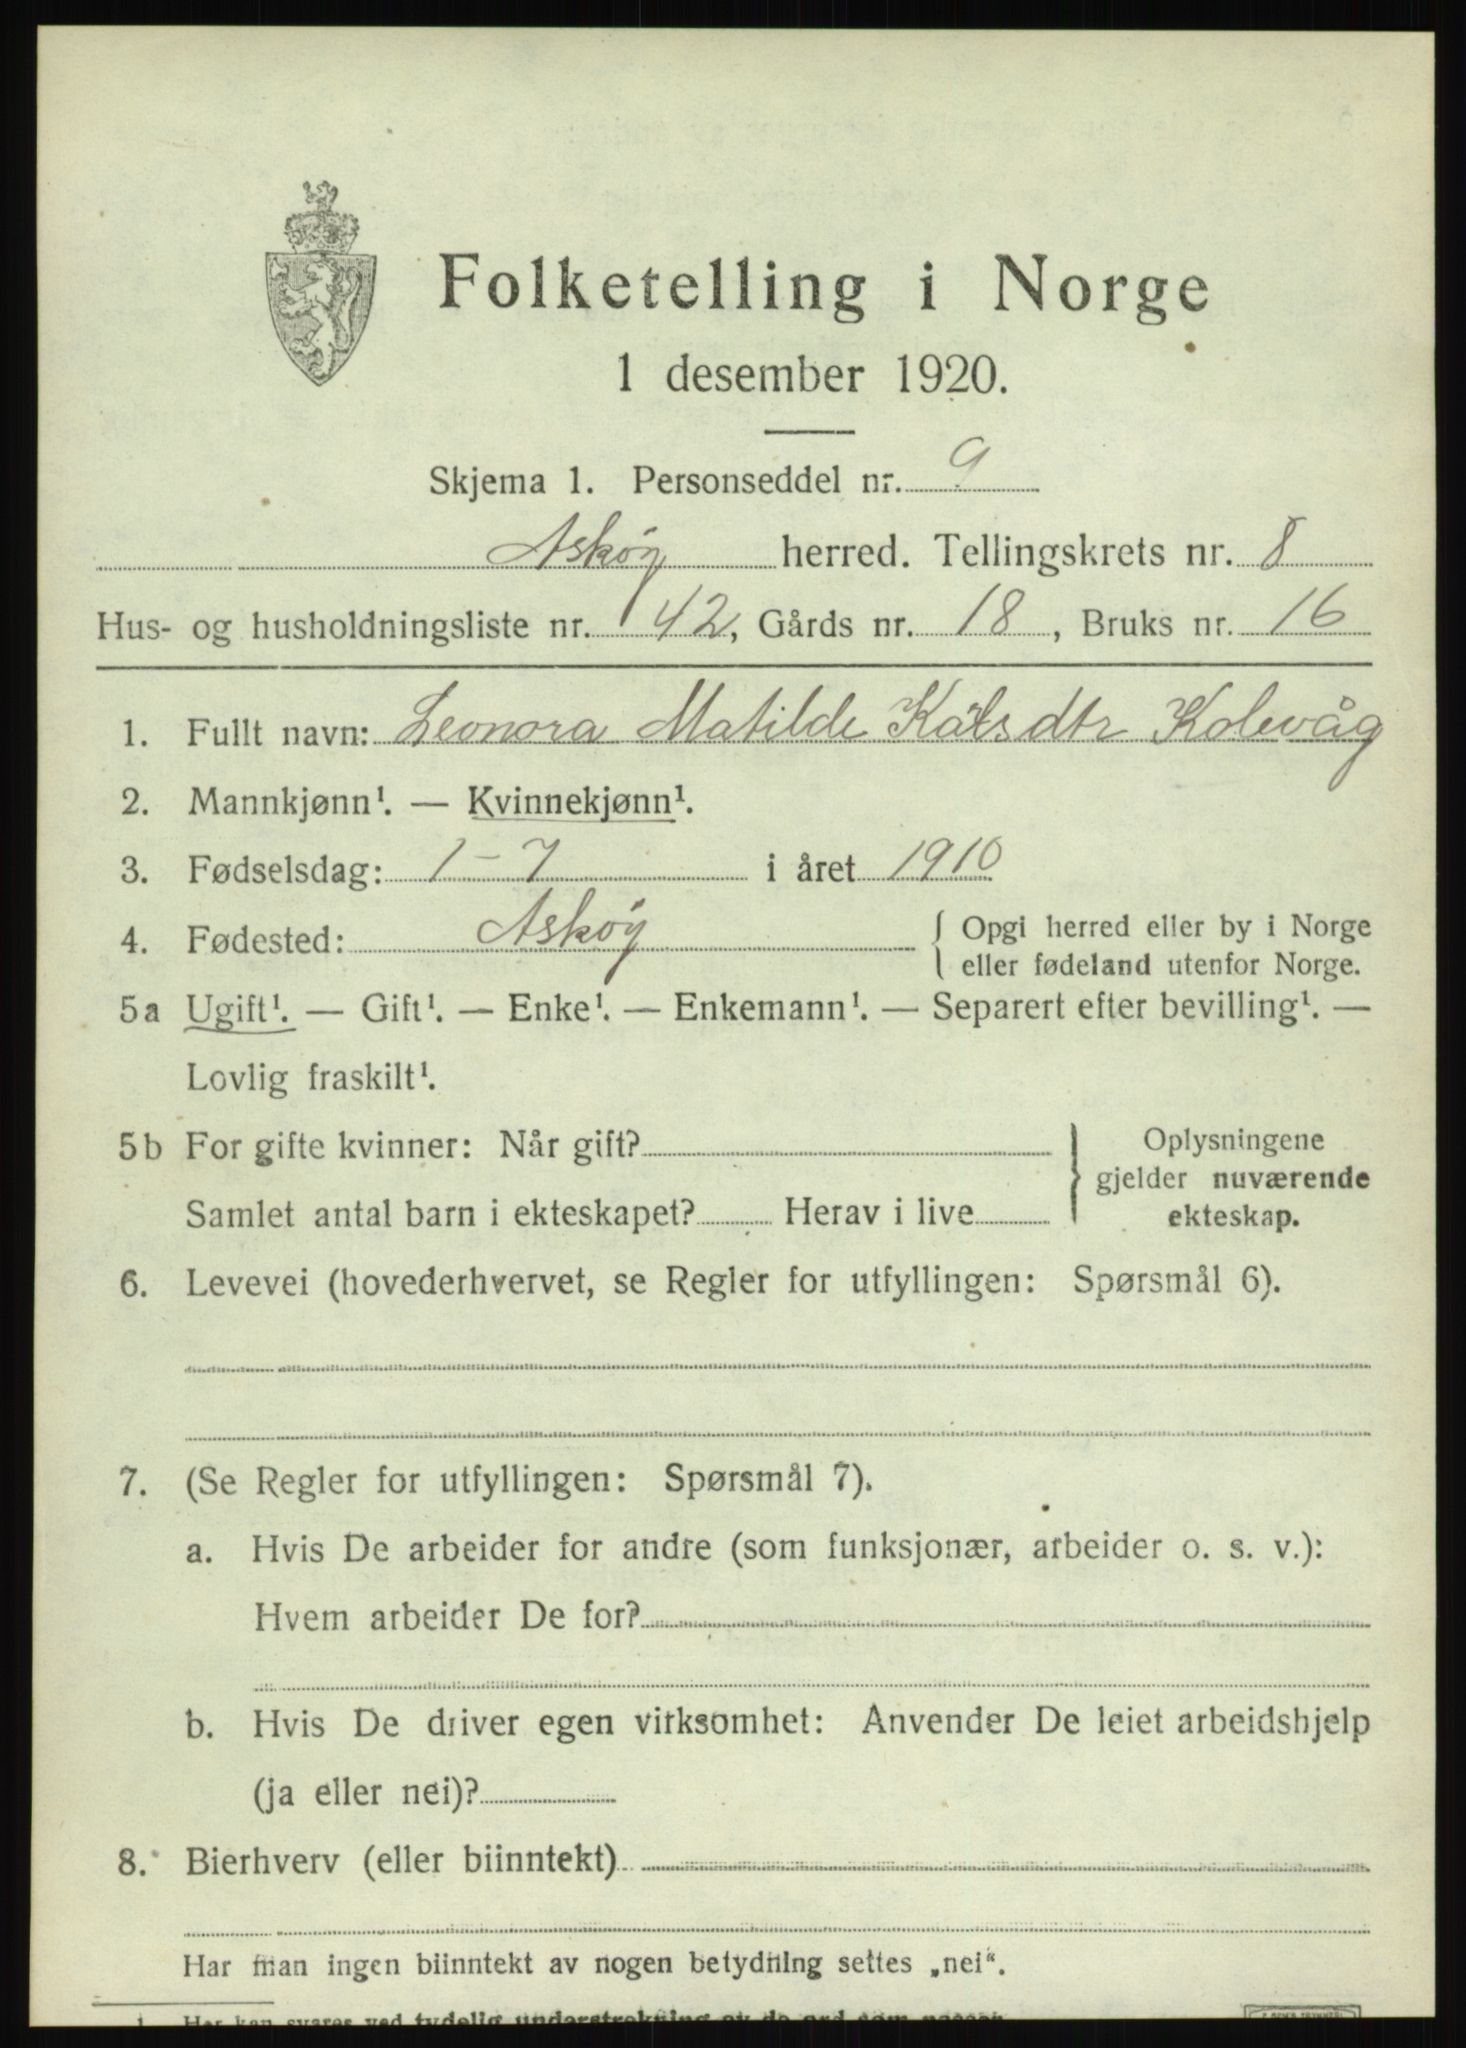 Folketelling i Norge
1 desember 1920.
Skjema 1. Personseddel nr. 9
Askøy herred. Tellingskrets nr. 8
Hus- og husholdningsliste nr. 42, Gårds nr. 18, Bruks nr. 16
1. Fullt navn: Leonora Matilde Kålsdtr Kolevåg
2. Mannkjønn¹. — Kvinnekjønn¹.
3. Fødselsdag: 1-7 i året 1910
4. Fødested: Askøy { Opgi herred eller by i Norge
eller fødeland utenfor Norge.
5a Ugift¹. — Gift¹. — Enke¹. — Enkemann¹. — Separert efter bevilling¹. —
Lovlig fraskilt¹.
5b For gifte kvinner: Når gift?
Samlet antal barn i ekteskapet? Herav i live
} Oplysningene
gjelder nuværende
ekteskap.
6. Levevei (hovederhvervet, se Regler for utfyllingen: Spørsmål 6).
7. (Se Regler for utfyllingen: Spørsmål 7).
a. Hvis De arbeider for andre (som funksjonær, arbeider o. s. v.):
Hvem arbeider De for?
b. Hvis De driver egen virksomhet: Anvender De leiet arbeidshjelp
(ja eller nei)?
8. Bierhverv (eller biinntekt)
Har man ingen biinntekt av nogen betydning settes „nei“.
1 Her kan svares ved tydelig understrekning av de ord som passer.